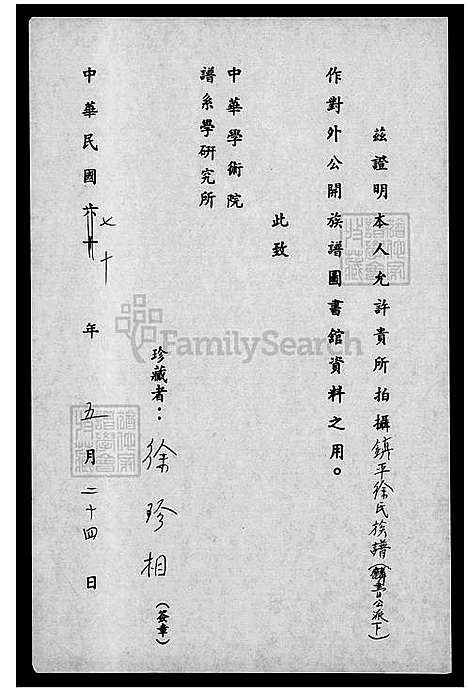 茲證明本人允許貴所拍攝鎮平徐氏族譜(麟書公派下)
作對外公開族譜圖書館資料之用。
此致
中華學術院
譜系學研究所
珍藏者：徐珍相(簽章)
中華民國七十年五月二十四日
FamilySearch